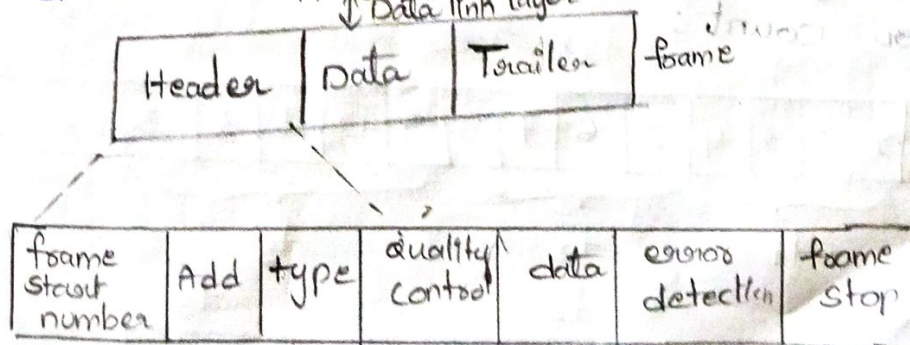 ↓ Data link layer
Header Data Trailer frame
frame start number Add type quality control data error detection frame stop